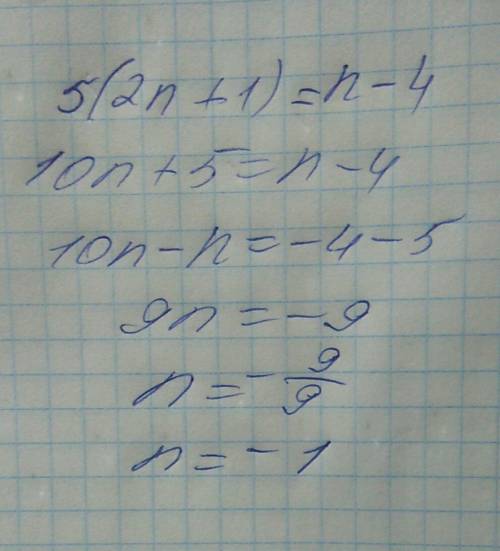 5(2n+1)=n-4
10n+5=n-4
10n-n=-4-5
9n=-9
n=-9/9
n=-1